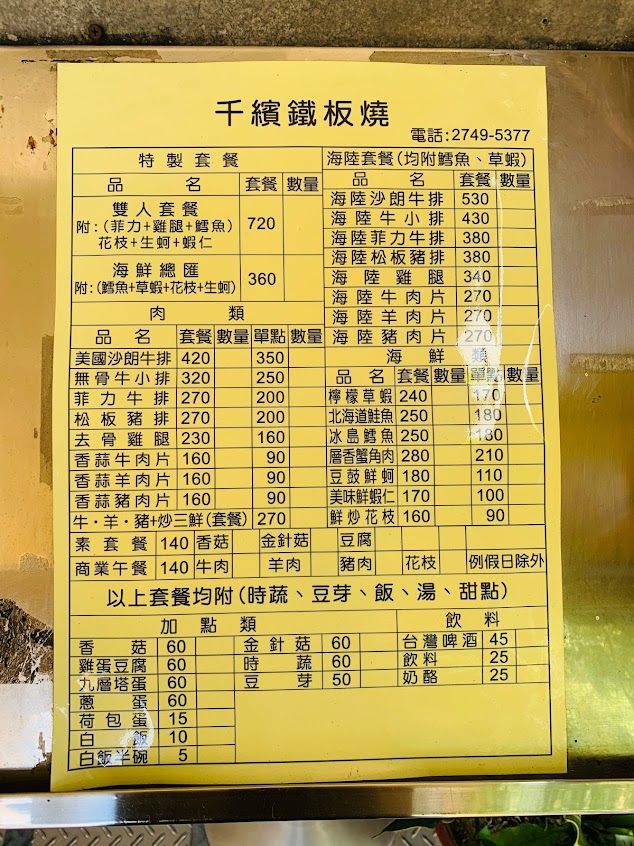 千繽鐵板燒
電話:2749-5377
特製套餐
品名 套餐 數量
雙人套餐 720
附:(菲力+雞腿+鱈魚)
花枝+生蚵+蝦仁
海鮮總匯 360
附:(鱈魚+草蝦+花枝+生蚵)
肉類
品名 套餐 數量 單點 數量
美國沙朗牛排 420 350
無骨牛小排 320 250
菲力牛排 270 200
松板豬排 270 200
去骨雞腿 230 160
香蒜牛肉片 160 90
香蒜羊肉片 160 90
香蒜豬肉片 160 90
牛・羊・豬+炒三鮮(套餐) 270
海陸套餐(均附鱈魚、草蝦)
品名 套餐 數量
海陸沙朗牛排 530
海陸牛小排 430
海陸菲力牛排 380
海陸松板豬排 380
海陸雞腿 340
海陸牛肉片 270
海陸羊肉片 270
海陸豬肉片 270
海鮮類
品名 套餐 數量 單點 數量
檸檬草蝦 240 170
北海道鮭魚 250 180
冰島鱈魚 250 180
層香蟹角肉 280 210
豆鼓鮮蚵 180 110
美味鮮蝦仁 170 100
鮮炒花枝 160 90
素套餐 140 香菇 金針菇 豆腐
商業午餐 140 牛肉 羊肉 豬肉 花枝 例假日除外
以上套餐均附(時蔬、豆芽、飯、湯、甜點)
加點類
香菇 60 金針菇 60
雞蛋豆腐 60 時蔬 60
九層塔蛋 60 豆芽 50
蔥蛋 60
荷包蛋 15
白飯 10
白飯半碗 5
飲料
台灣啤酒 45
飲料 25
奶酪 25